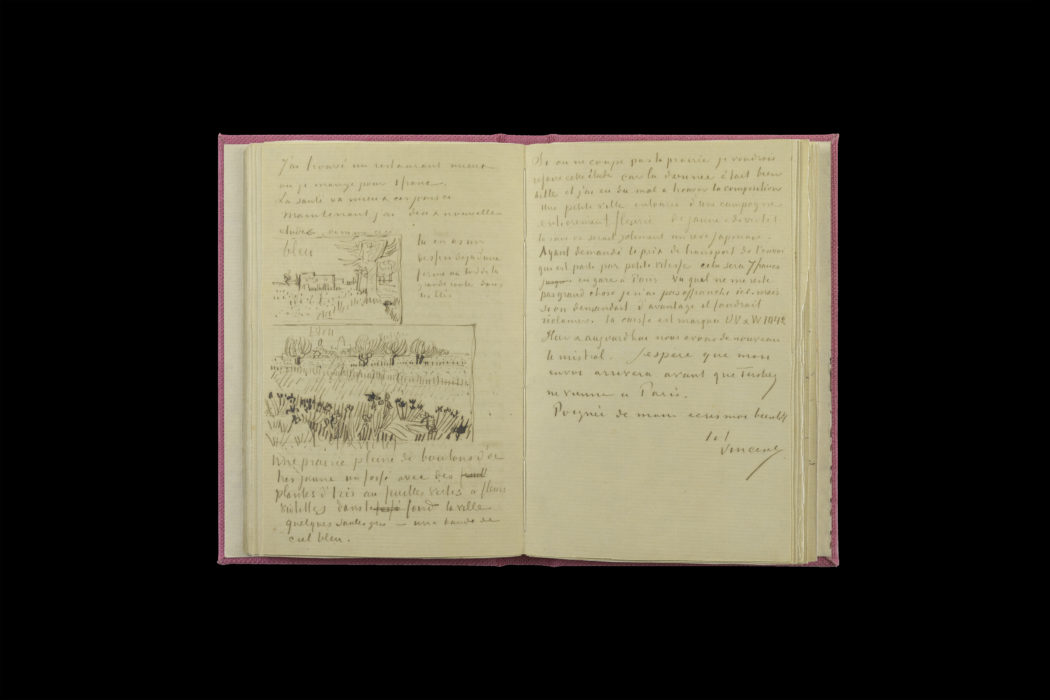 J'ai trouvé un restaurant mieux
où je mange pour 1 franc.
La santé va mieux ces jours ci
Maintenant j'ai deux nouvelles
études comme ceci
bleu
tu en as un
dessin déjà d'une
ferme au bord de la
grande route dans
les blés.
bleu
Une prairie pleine de boutons d'or
très jaune un fossé avec des
plantes d'iris aux feuilles vertes à fleurs
violettes dans le fond la ville
quelques saules gris — une bande de
ciel bleu.
Si on ne coupe pas la prairie je voudrais
refaire cette étude car la donnée était bien
belle et j'ai eu du mal a trouver la composition
Une petite ville entourée d'une campagne
entierement fleurie de jaune & de violet
ce serait joliment un rêve japonais.
Ayant demandé le prix de transport de l'envoi
qui est parti par petite vitesse cela sera 7 francs
en gare à Paris. Vu qu'il ne me reste
pas grand chose je n'ai pas affranchi ici. mais
si on demandait d'avantage il faudrait
réclamer. La caisse est marquée UV & W 1042
Hier & aujourd'hui nous avons de nouveau
le mistral. J'espère que mon
envoi arrivera avant que Tersteeg
ne vienne à Paris.
Poignée de main écris moi bientôt
t. à t.
Vincent